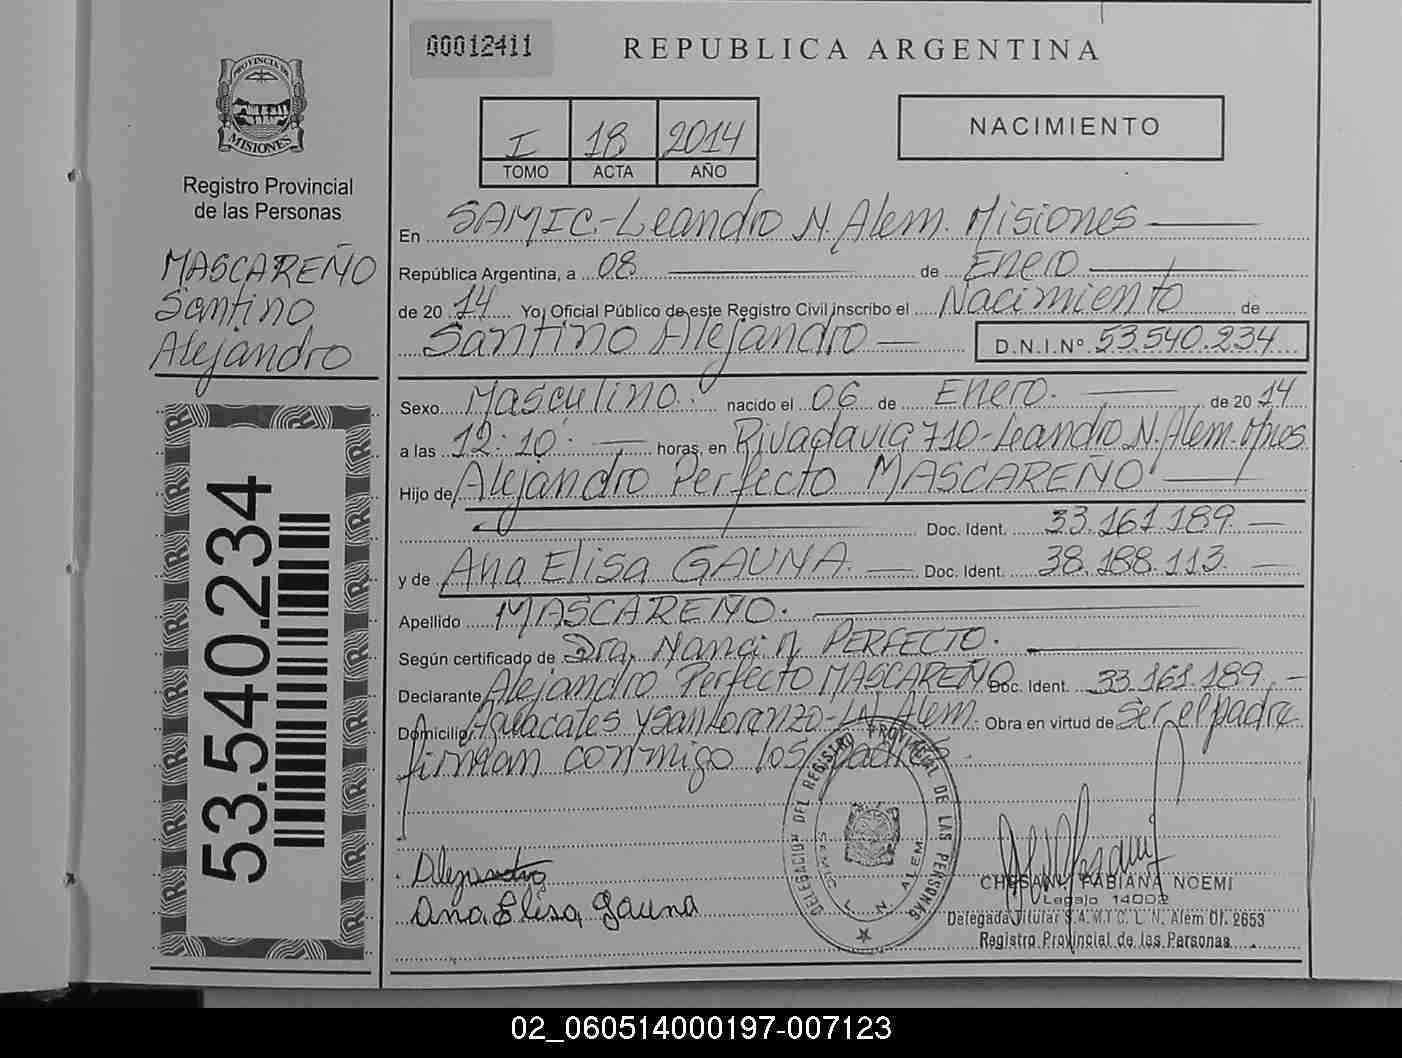 00012411
REPUBLICA ARGENTINA
PROVINCIA DE
MISIONES
Registro Provincial
de las Personas
I 18 2014
TOMO ACTA AÑO
NACIMIENTO
MASCAREÑO
Santino
Alejandro
53.540.234
En SAMIC.-Leandro N. Alem. Misiones
República Argentina, a 08 de Enero
de 20 14 Yo, Oficial Público de este Registro Civil inscribo el Nacimiento de
Santino Alejandro D.N.I.Nº 53.540.234
Sexo Masculino. nacido el 06 de Enero. de 20 14
a las 12:10 horas, en Rivadavia 710-Leandro N. Alem. Mnes.
Hijo de Alejandro Perfecto MASCAREÑO
Doc. Ident. 33.161.189
y de Ana Elisa GAUNA. Doc. Ident. 38.188.113.
Apellido MASCAREÑO.
Según certificado de Dra. Nanci N. PERFECTO.
Declarante Alejandro Perfecto MASCAREÑO Doc. Ident. 33.161.189.
Domicilio y San Lorenzo-L.N. Alem. Obra en virtud de Ser el padre
firman conmigo los padres.
DELEGACION DEL REGISTRO PROVINCIAL DE LAS PERSONAS
L. N. ALEM
Alejandro
Ana Elisa Gauna
CHESANI, FABIANA NOEMI
Legajo 14002
Delegada Titular S.A.M.I.C. L. N. Alem Of. 2653
Registro Provincial de las Personas
02_060514000197-007123